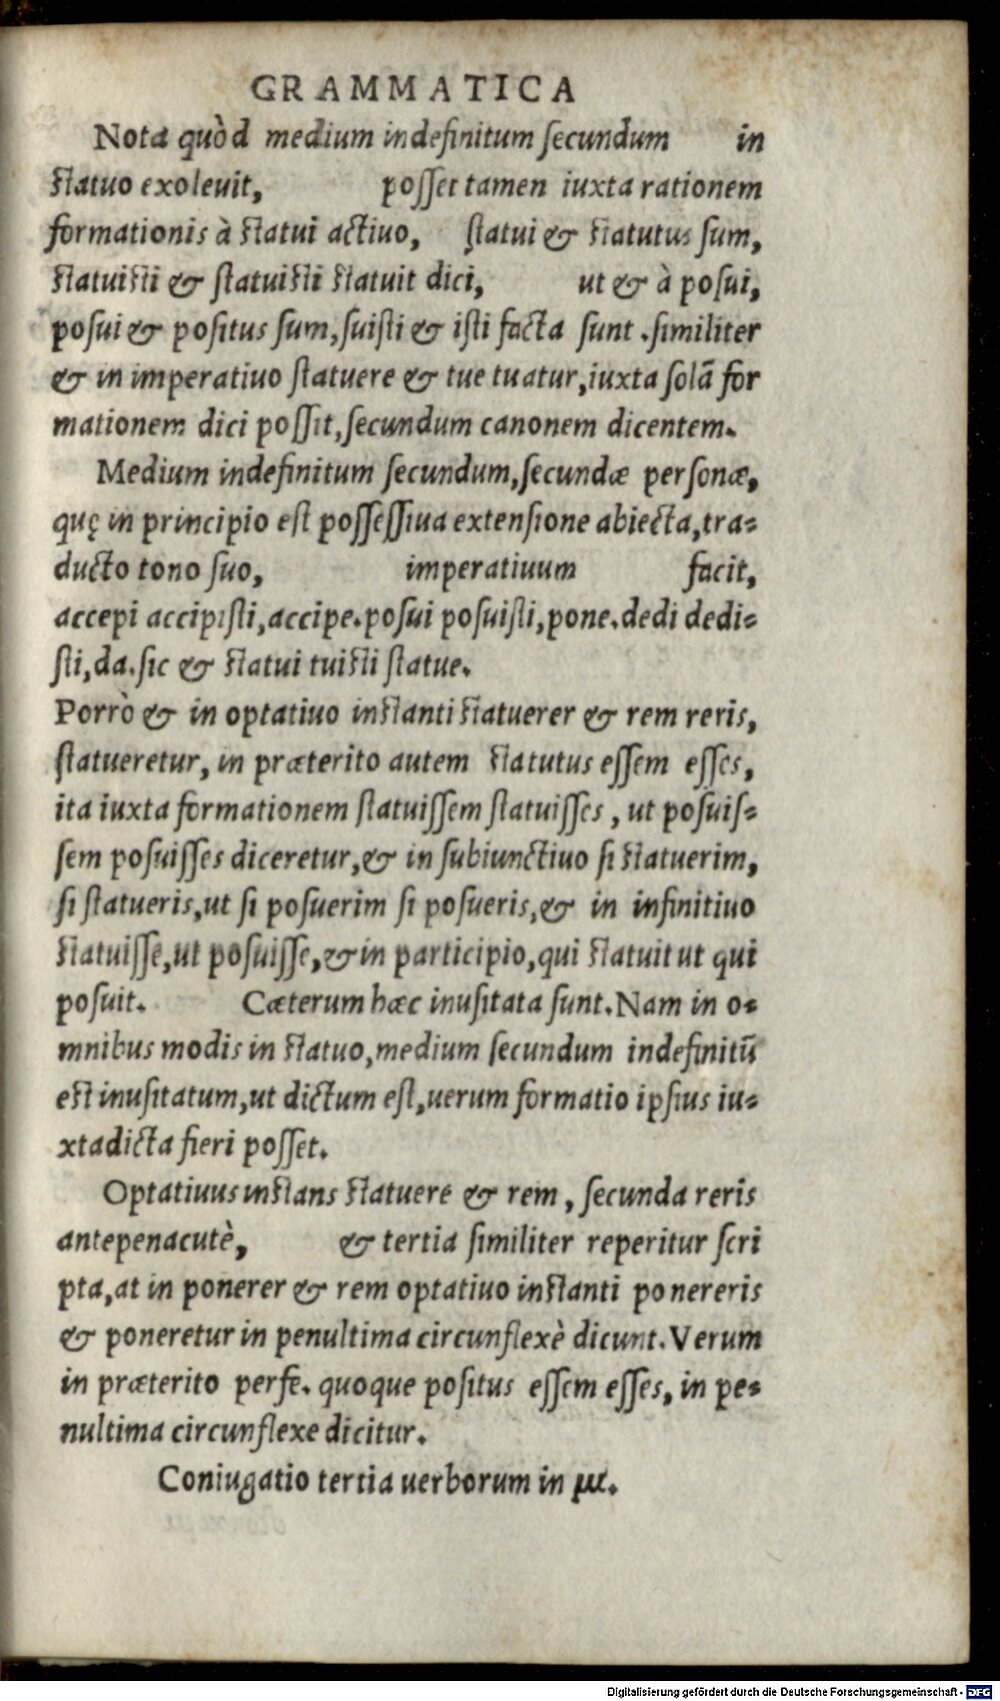 GRAMMATICA
Nota quòd medium indefinitum ſecundum in
ſtatuo exoleuit, poſſet tamen iuxta rationem
formationis à ſtatui actiuo, ſtatui & ſtatutus ſum,
ſtatuiſti & ſtatuiſti ſtatuit dici, ut & à poſui,
poſui & poſitus ſum, ſuiſti & iſti facta ſunt. ſimiliter
& in imperatiuo ſtatuere & tue tuatur, iuxta ſolā for
mationem dici poſſit, ſecundum canonem dicentem.
Medium indefinitum ſecundum, ſecundæ perſonæ,
quę in principio eſt poſſeſſiua extenſione abiecta, tra-
ducto tono ſuo, imperatiuum facit,
accepi accipiſti, accipe. poſui poſuiſti, pone. dedi dedi-
ſti, da. ſic & ſtatui tuiſti ſtatue.
Porrò & in optatiuo inſtanti ſtatuerer & rem reris,
ſtatueretur, in præterito autem ſtatutus eſſem eſſes,
ita iuxta formationem ſtatuiſſem ſtatuiſſes, ut poſuiſ-
ſem poſuiſſes diceretur, & in ſubiunctiuo ſi ſtatuerim,
ſi ſtatueris, ut ſi poſuerim ſi poſueris, & in infinitiuo
ſtatuiſſe, ut poſuiſſe, & in participio, qui ſtatuit ut qui
poſuit. Cæterum hæc inuſitata ſunt. Nam in o-
mnibus modis in ſtatuo, medium ſecundum indefinitū
eſt inuſitatum, ut dictum eſt, uerum formatio ipſius iu-
xta dicta fieri poſſet.
Optatiuus inſtans ſtatuere & rem, ſecunda reris
antepenacutè, & tertia ſimiliter reperitur ſcri
pta, at in ponerer & rem optatiuo inſtanti ponereris
& poneretur in penultima circunflexè dicunt. Verum
in præterito perfe. quoque poſitus eſſem eſſes, in pe-
nultima circunflexe dicitur.
Coniugatio tertia uerborum in μι.
Digitalisierung gefördert durch die Deutsche Forschungsgemeinschaft - DFG